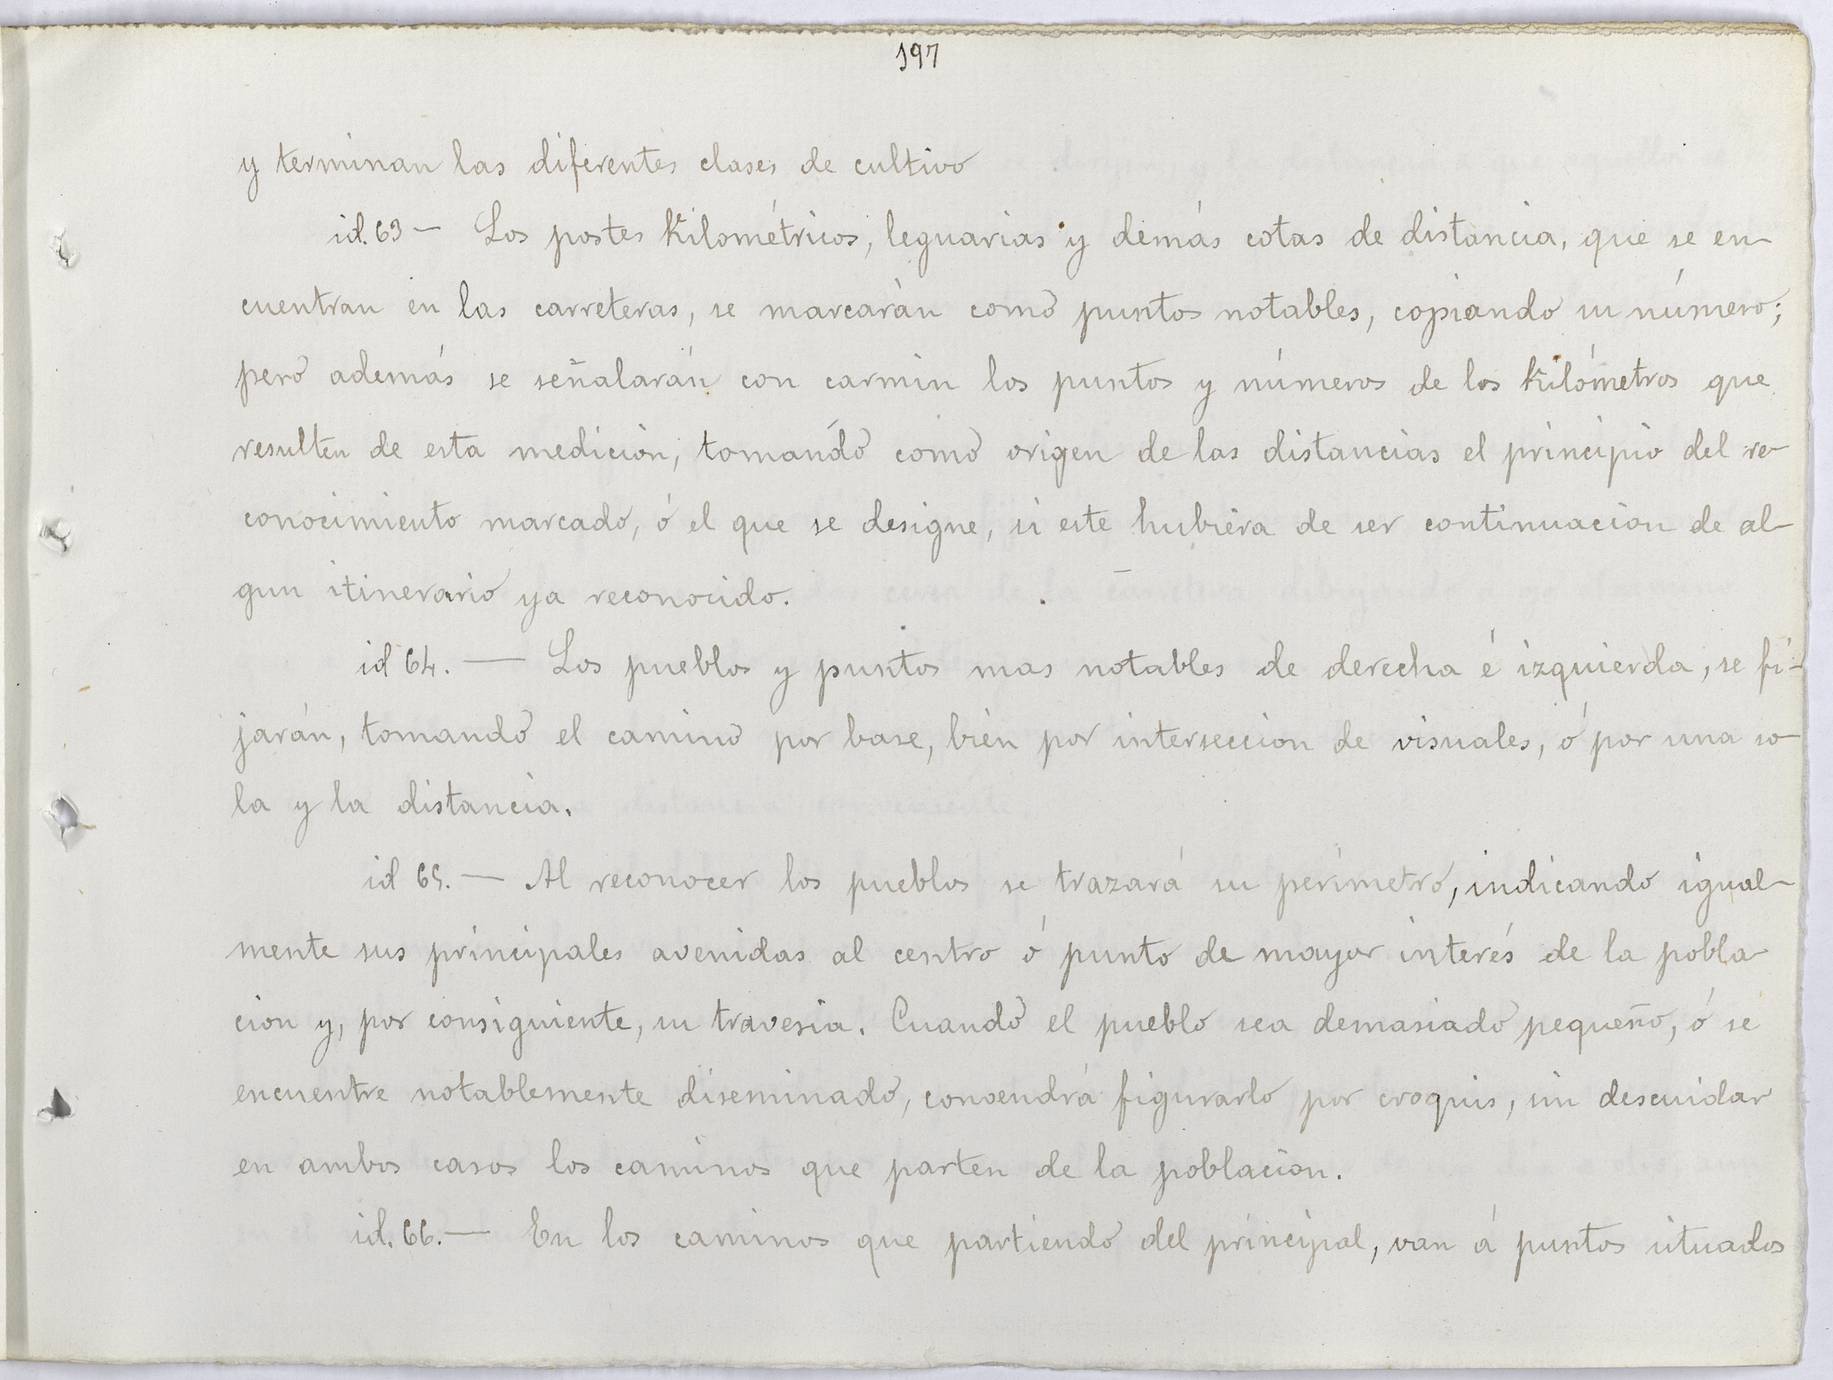 197
y terminan las diferentes clases de cultivo
id. 63 — Los postes kilométricos, leguarias y demás cotas de distancia, que se en-
cuentran en las carreteras, se marcarán como puntos notables, copiando su número;
pero además se señalarán con carmin los puntos y números de los kilómetros que
resulten de esta medición, tomando como origen de las distancias el principio del re-
conocimiento marcado, ó el que se designe, si este hubiera de ser continuacion de al-
gun itinerario ya reconocido.
id 64. — Los pueblos y puntos mas notables de derecha é izquierda, se fi-
jarán, tomando el camino por base, bien por interseccion de visuales, ó por una so-
la y la distancia.
id 65. — Al reconocer los pueblos se trazará su perímetro, indicando igual-
mente sus principales avenidas al centro ó punto de mayor interés de la pobla-
cion y, por consiguiente, su travesia. Cuando el pueblo sea demasiado pequeño, ó se
encuentre notablemente diseminado, convendrá figurarlo por croquis, sin descuidar
en ambos casos los caminos que parten de la poblacion.
id. 66. — En los caminos que partiendo del principal, van á puntos situados